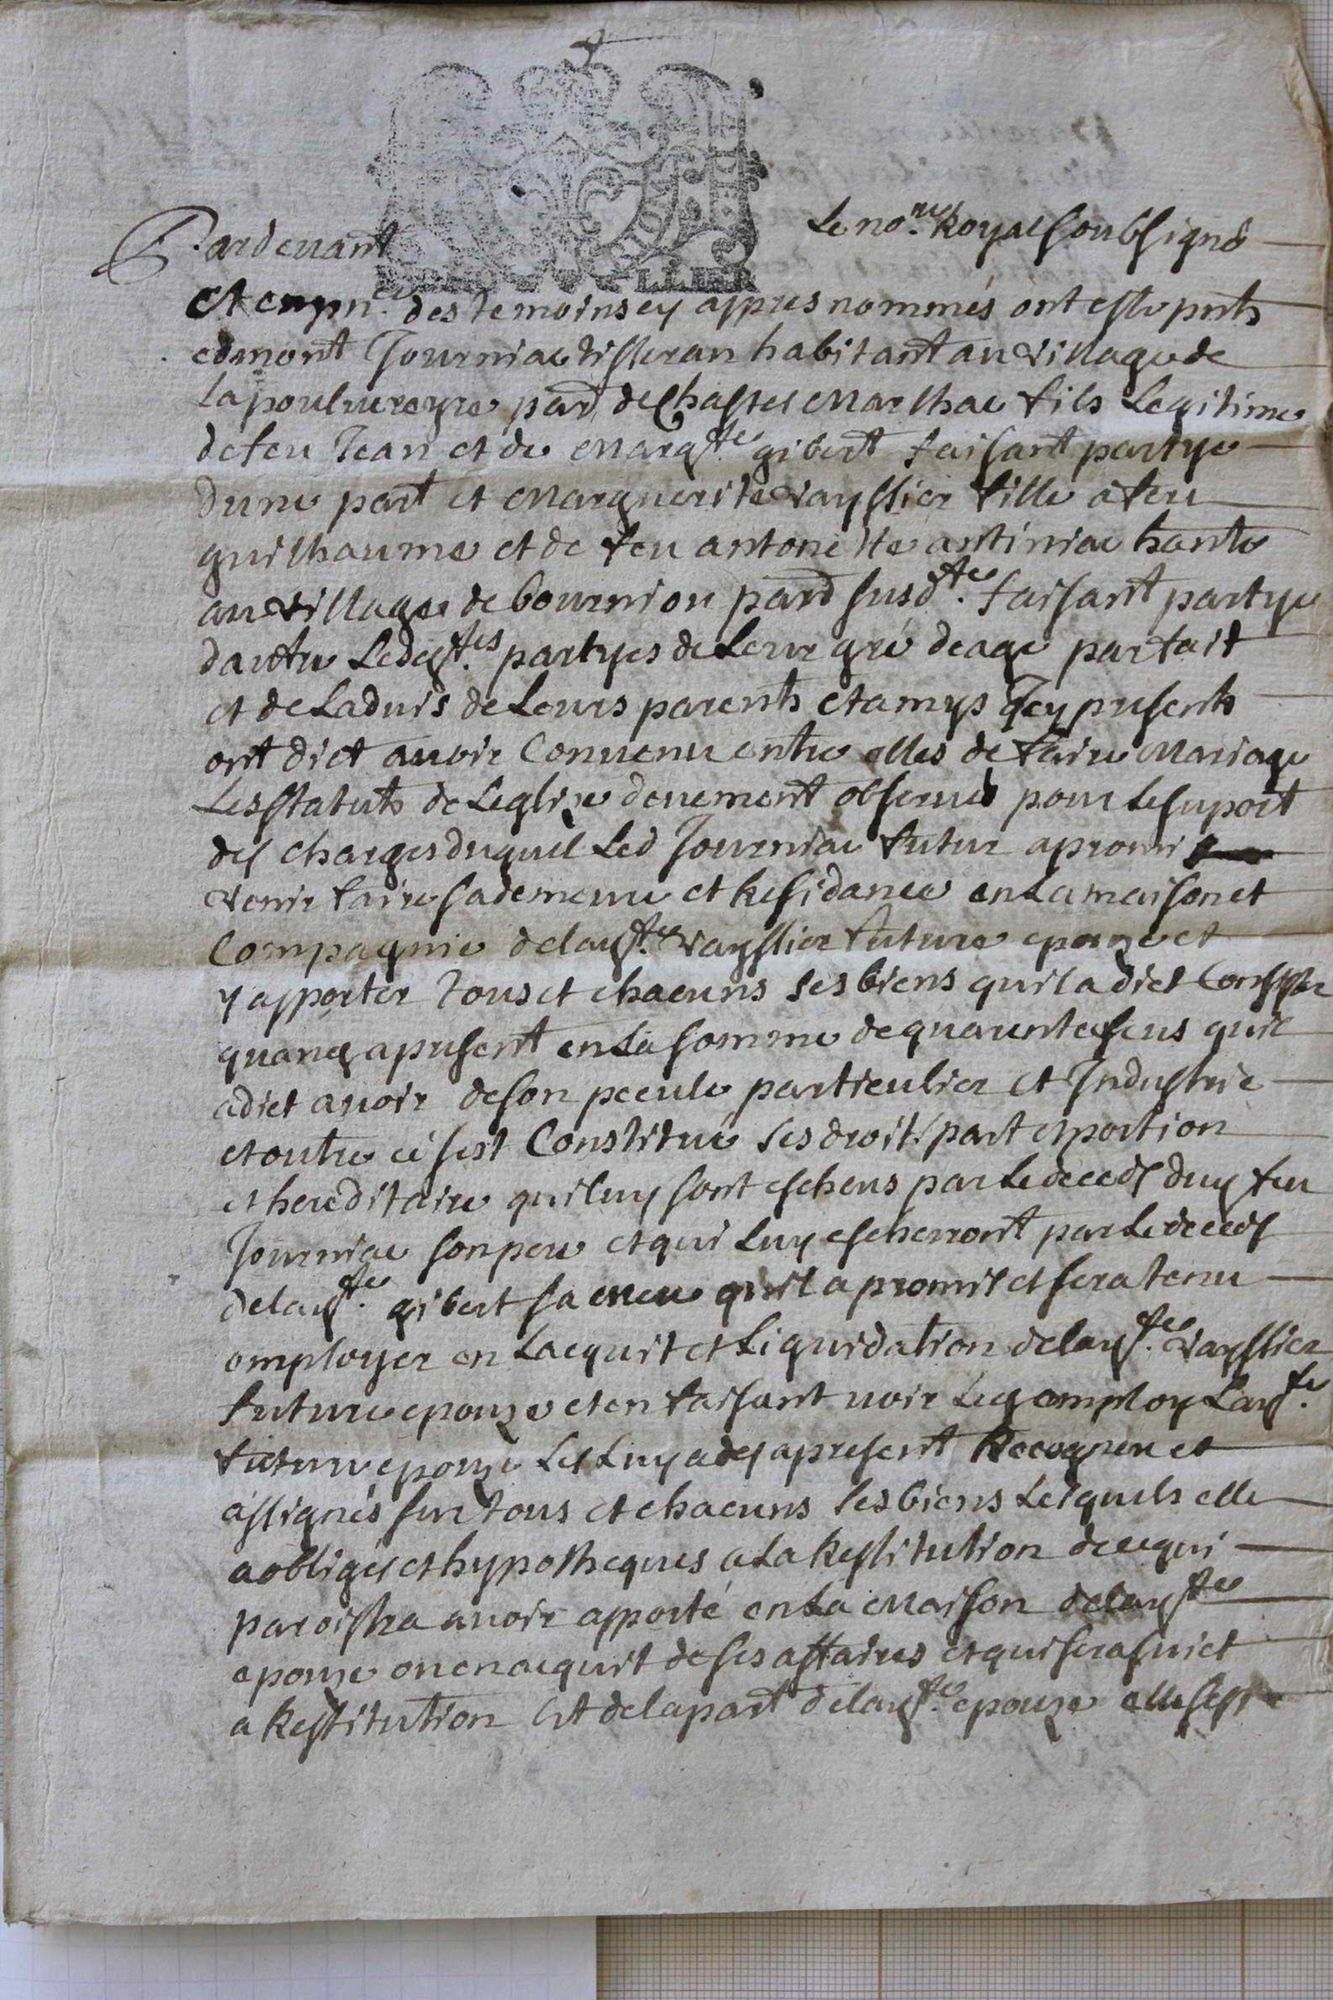 Pardevant Le no.re Royal soubsigné
Et en pn.ce des temoins cy appres nommés ont esté pnts
edmont Journiac tisseran habitant au village de
la poulvureyre par de Chastel Marlhac fils Legitime
de feu Jean et de Marg.te gibert faisant partye
dune part et Marguerite vayssier fille a feu
guilhaume et de feu antonette antiniac hante
au village de bournion pard susd.te faisant partye
dautre Lesdi.tes partyes de Leur gré de age parfait
et de Ladvis de Leurs parents et amys Icy presents
ont dict avoir Convenu entre elles de faire Mariage
Les statuts de Leglize deuement observés pour Le suport
des charges duquel Led Journiac futur a promis
venir faire sa demeure et Residance en La maison et
Compagnie de lad.te vayssier future epouze et
y apporter Tous et chacuns ses biens quil a dict Consister
quand a present en La somme de quarante escus quil
a dict avoir de son pecule particulier et Industrie
et outre ce sest Constitué ses droits part et portion
et hereditaire qui luy sont escheus par Le deceds dud feu
Journiac son pere et qui Luy escherront par Le deceds
de lad.te gibert sa Mere quil a promis et sera tenu
employer en Lacquit et Liquidation de lad.te vayssier
future epouze et en faisant voir Led employ Lad.te
future epouze Les Luy a des a present Recognu et
assignés sur tous et chacuns ses biens Lesquels elle
a obligés et hypotheques a La Restitution de ce qui
paroistra avoir apporté en La Maison de lad.te
epouze ou en acquit de ses affaires et qui sera suiet
a Restitution Et de la part de lad.te epouze elle sest